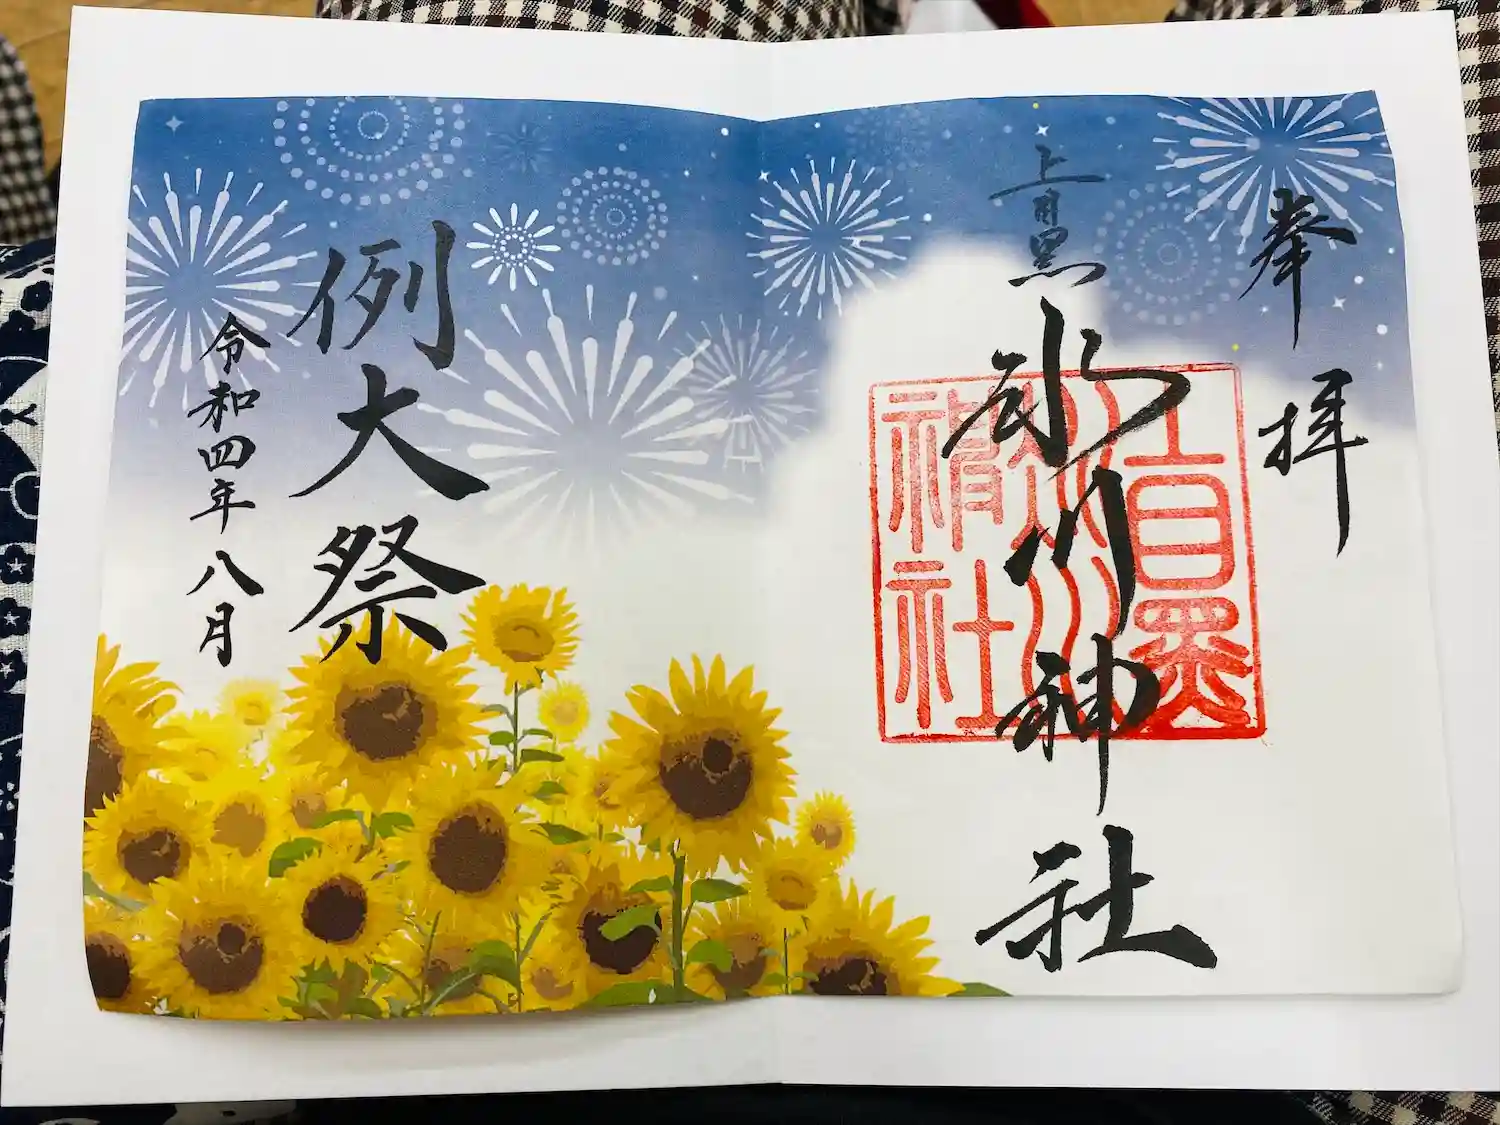 奉拝
上目黒
氷川神社
上目黒氷川神社
例大祭
令和四年八月